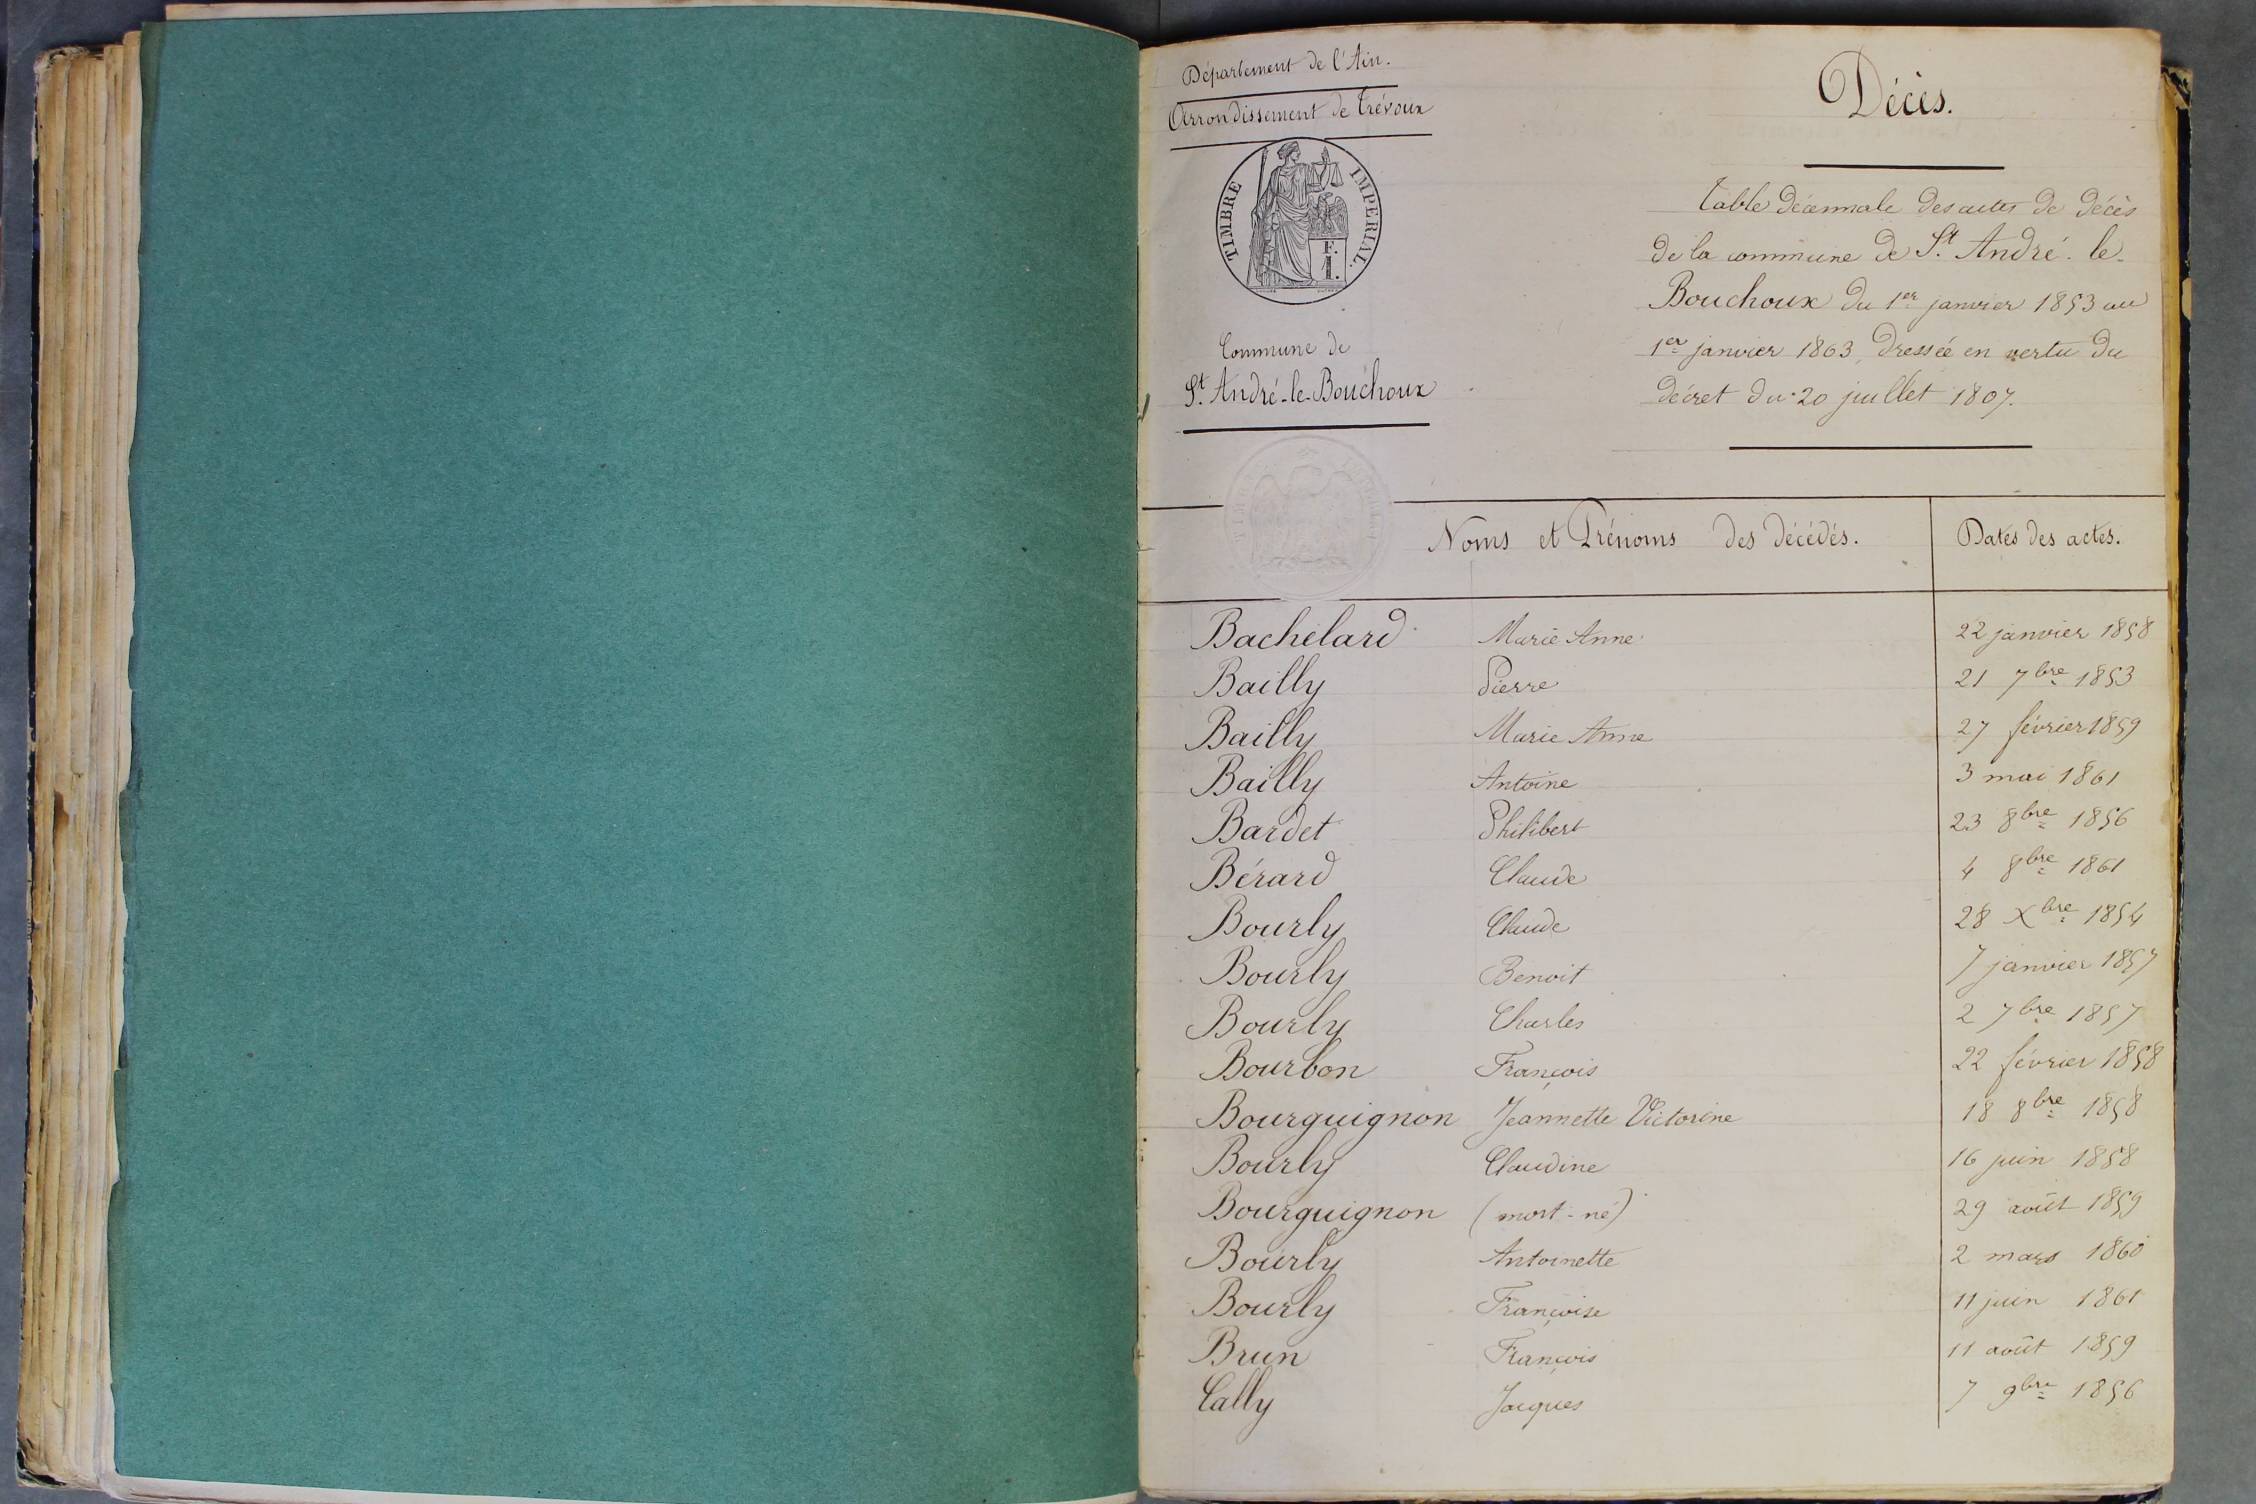 Département de l'Ain.
Arrondissement de Trévoux
TIMBRE IMPÉRIAL.
F.
1.
Commune de
St. André-le-Bouchoux
Décès.
Table décennale des actes de décès
de la commune de St. André-le-
Bouchoux du 1er janvier 1853 au
1er janvier 1863, dressée en vertu du
décret du 20 juillet 1807.
Noms et Prénoms des décédés. Dates des actes.
Bachelard Marie Anne 22 janvier 1858
Bailly Pierre 21 7bre 1853
Bailly Marie Anne 27 février 1859
Bailly Antoine 3 mai 1861
Bardet Philibert 23 8bre 1856
Bérard Claude 4 8bre 1861
Bourly Claude 28 Xbre 1854
Bourly Benoit 7 janvier 1857
Bourly Charles 2 7bre 1857
Bourbon François 22 février 1858
Bourguignon Jeannette Victorine 18 8bre 1858
Bourly Claudine 16 juin 1858
Bourguignon (mort-né) 29 août 1859
Bourly Antoinette 2 mars 1860
Bourly Françoise 11 juin 1861
Brun François 11 août 1859
Cally Jacques 7 9bre 1856